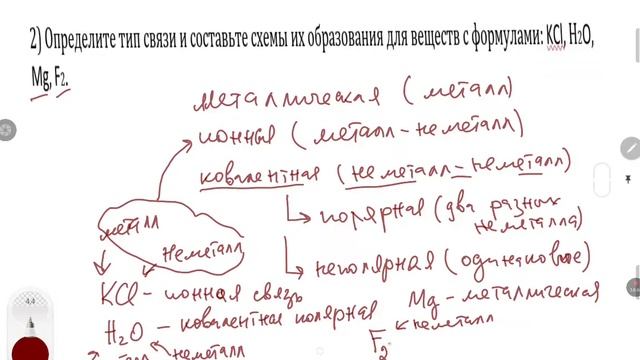 2) Определите тип связи и составьте схемы их образования для веществ с формулами: KCl, H2O,
Mg, F2.
металлическая (металл)
ионный (металл - неметалл)
ковалентная (неметалл - неметалл)
полярная (два разных
неметалла)
металл
неметалл
неполярная (одинаковые)
KCl - ионная связь
Mg - металлическая
H2O - ковалентная полярная
неметалл
F2
неметалл
4,4